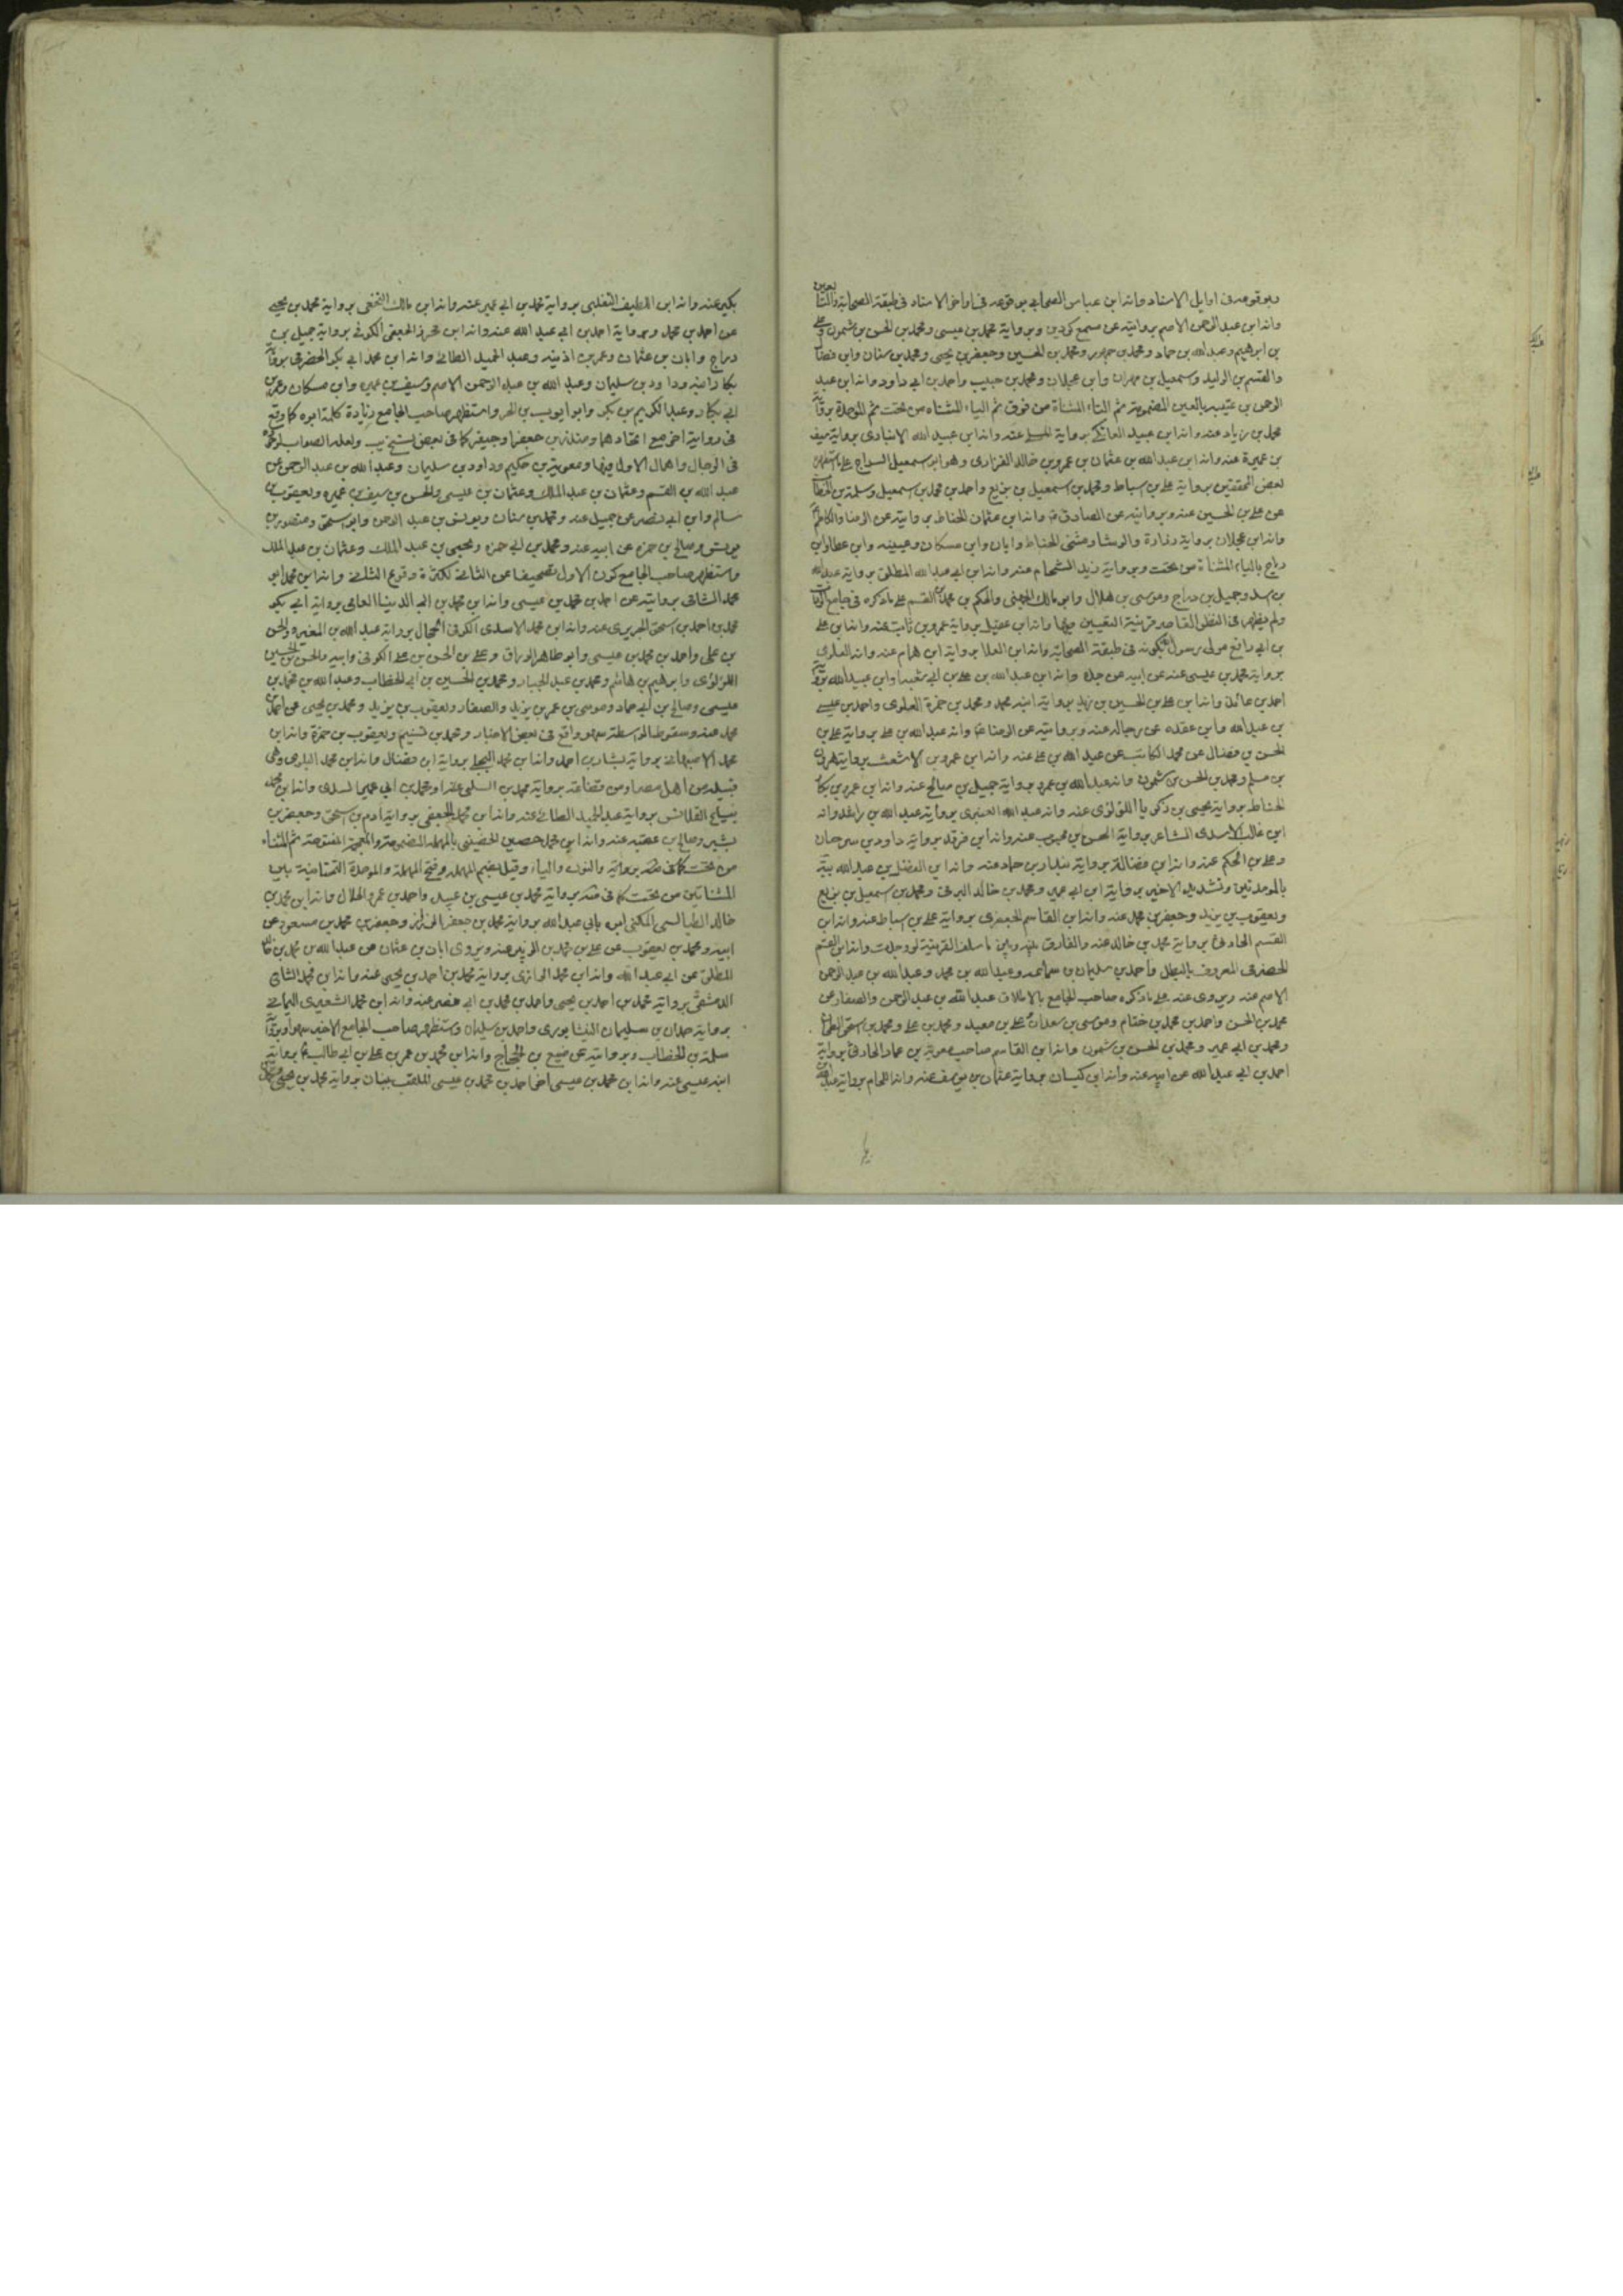 وبوقوعه فى اوايل الاسناد وانه ابن عباس الصحابى بوقوعه فى اواخر الاسناد فى طبقة الصحابة والتابعين
وانه ابن عبد الرحمن الاصم بروايته عن مسمع كردين وبرواية محمد بن عيسى ومحمد بن الحسن بن شمون وعلى
بن ابرهيم وعبد الله بن حماد ومحمد بن جمهور ومحمد بن الحسين وجعفر بن يحيى ومحمد بن سنان وابن فضال
والقسم بن الوليد وسمعيل بن مهران وابن عجلان ومحمد بن حبيب واحمد بن ابى داود وانه ابن عبد
الرحمن بن عتيبه بالعين المضمومة ثم التاء المثناة من فوق ثم الياء المثناه من تحت ثم الموحدة برواية
محمد بن زياد عنه وانه ابن عبيد العاتكى برواية المسلى عنه وانه ابن عبيد الله الانبارى برواية سيف
بن عميرة عنه وانه ابن عبد الله بن عثمان بن عمرو بن خالد الفزارى وهو ابو سمعيل السراج على ما استظهره
بعض المحققين برواية على بن اسباط ومحمد بن اسمعيل بن بزيع واحمد بن محمد بن اسمعيل وسلمة بن الخطاب
عن على بن الحسين عنه وبروايته عن الصادق ع وانه ابن عثمان الحناط بروايته عن الرضا والكاظم
وانه ابن عجلان برواية زرارة والوشا ومثنى الحناط وابان وابن مسكان وعيينه وابن عطا وابن
دراج بالياء المثناة من تحت وبرواية زيد الشحام عنه وانه ابن ابى عبد الله المطلق برواية عبد الله
بن اسد وجميل بن دراج وموسى بن هلال وابو مالك الجهنى والحكم بن محمد بن القسم على ما ذكره فى جامع الرواة
ولم يظهر فى النظر القاصر قرينة التعيين فيها وانه ابن عقيل برواية عمرو بن ثابت عنه وانه ابن على
بن ابى رافع مولى رسول بكونه فى طبقة الصحابة وانه ابن العلا برواية ابن همام عنه وانه العلوى
برواية محمد بن عيسى عنه عن ابيه عن جده وانه ابن عبد الله بن على بن ابى شعبه او ابن عبيد الله برواية
احمد بن عائذ وانه ابن على بن الحسين بن زيد برواية ابنه محمد ومحمد بن حمزة العلوى واحمد بن عيسى
بن عبد الله وابن عقده عن رجاله عنه وبروايته عن الرضا ع وانه عبد الله بن على برواية على بن
الحسن بن فضال عن محمد الكاتب عن عبد الله بن على عنه وانه ابن عمرو بن الاشعث برواية هرون
بن مسلم ومحمد بن الحسن بن شمون وانه عبد الله بن عمرو برواية جميل بن صالح عنه وانه ابن عمرو بن بكار
الحناط برواية يحيى بن زكريا اللؤلؤى عنه وانه عبد الله العنبرى برواية عبد الله بن راغد وانه
ابن غالب الاسدى الشاعر برواية الحسن بن محبوب عنه وانه ابن فرقد برواية داود بن سرحان
وعلى بن الحكم عنه وانه ابن فضاله برواية بندار بن حماد عنه وانه ابن الفضل بن عبد الله ببه
بالموحدتين وتشديد الاخير برواية ابن ابى عمير ومحمد بن خالد البرقى ومحمد بن سمعيل بن بزيع
ويعقوب بن يزيد وجعفر بن محمد عنه وانه ابن القاسم الجعفرى برواية على بن اسباط عنه وانه ابن
القسم الحارثى برواية محمد بن خالد عنه والفارق بينه وبين ما سلف القرينة لو وجدت وانه ابن القسم
الحضرمى المعروف بالبطل واحمد بن سليمان بن سماعه وعبد الله بن محمد وعبد الله بن عبد الرحمن
الاصم عنه ويروى عنه على ما ذكره صاحب الجامع بالاطلاق عبد الله بن عبد الرحمن والصفار عن
محمد بن الحسن واحمد بن محمد بن ختام وموسى بن سعدان وعلى بن معبد ومحمد بن على ومحمد بن اسحق
ومحمد بن ابى عمير ومحمد بن الحسن بن شمون وانه ابن القاسم صاحب معوية بن عمار الحارثى برواية
احمد بن ابى عبد الله عن ابيه عنه وانه ابن كيسان برواية عثمان بن يوسف عنه وانه اللحام برواية عبد الله بن
بكير عنه وانه ابن اللطيف التغلبى برواية محمد بن ابى عمير عنه وانه ابن مالك النخعى برواية محمد بن يحيى
عن احمد بن محمد وبرواية احمد بن ابى عبد الله عنه وانه ابن محرز الجعفى الكوفى برواية جميل بن
دراج وابان بن عثمان وعمر بن اذينه وعبد الحميد الطائى وانه ابن محمد ابى بكر الحضرمى برواية
بكار ابنه وداود بن سليمان وعبد الله بن عبد الرحمن الاصم وسيف بن عميره وابن مسكان وعمر بن
ابى بكار وعبد الكريم بن بكر وابو ايوب بن الحر واستظهر صاحب الجامع زيادة كلمة ابوه كما وقع
فى رواية اخرى مع اتحادهما ومنذر بن جعفر وجيفر كما فى بعض نسخ يب ولعله الصواب
فى الرجال واهمال الاول فيها ومعوية بن حكيم وداود بن سليمان وعبد الله بن عبد الرحمن عن
عبد الله بن القسم وعثمان بن عبد الملك وعثمان بن عيسى والحسن بن سيف بن عميره ويعقوب بن
سالم وابن ابى نصر عن جميل عنه ومحمد بن سنان ويونس بن عبد الرحمن وابو اسحق ومنصور بن
يونس وصالح بن حمزه عن ابيه عنه ومحمد بن ابى حمزه ويحيى بن عبد الملك وعثمان بن عبد الملك
واستظهر صاحب الجامع كون الاول تصحيفا عن الثانى لكثرة وقوع الثانى وانه ابن محمد ابو
محمد الشامى بروايته عن احمد بن محمد بن عيسى وانه ابن محمد بن ابى الدنيا العامى برواية ابى بكر
محمد بن احمد بن اسحق الحريرى عنه وانه ابن محمد الاسدى الكوفى الحجال برواية عبد الله بن المغيره والحسن
بن على واحمد بن محمد بن عيسى وابو طاهر الوراق وعلى بن الحسن بن على الكوفى وابيه والحسن بن الحسين
اللؤلؤى وابرهيم بن هاشم ومحمد بن عبد الجبار ومحمد بن الحسين بن ابى الخطاب وعبد الله بن محمد بن
عيسى وصالح بن ابى حماد وموسى بن عمر بن يزيد والصفار ويعقوب بن يزيد ومحمد بن يحيى عن احمد بن
محمد عنه وسقوط الواسطة سهو واقع فى بعض الاخبار ومحمد بن تسنيم ويعقوب بن حمزة وانه ابن
محمد الاصبهانى برواية بشار بن احمد وانه ابن محمد البجلى برواية ابن فضال وانه ابن محمد البلوى وهى
قبيله من اهل مصر او من قضاعه برواية محمد بن السلمى عنه او محمد بن ابى عمير الاسدى وانه ابن محمد
بياع القلانس برواية عبد الحميد الطائى عنه وانه ابن محمد الجعفى برواية ادم بن اسحق وجعفر بن
بشير وصالح بن عقبه عنه وانه ابن محمد حصين الحضينى بالمهمله المضمومة والمعجمة المفتوحة ثم المثناه
من تحت كما فى والنون والياء وقيل بضم المهمله وفتح المهملة والموحدة التحتانية بين
المثناتين من تحت كما فى برواية محمد بن عيسى بن عبيد واحمد بن عمر الحلال وانه ابن محمد بن
خالد الطيالسى المكنى ابوه بابى عبد الله برواية محمد بن جعفر الرزاز وجعفر بن محمد بن مسعود عن
ابيه ومحمد بن يعقوب عن على بن محمد بن الزبير عنه ويروى ابان بن عثمان عن عبد الله بن محمد بن خالد
المطلق عن ابى عبد الله وانه ابن محمد الرازى برواية محمد بن احمد بن يحيى عنه وانه ابن محمد الشامى
الدمشقى برواية محمد بن احمد بن يحيى واحمد بن محمد بن ابى نصر عنه وانه ابن محمد الشعيرى اليمانى
برواية حمدان بن سليمان النيشابورى واحمد بن سليمان واستظهر صاحب الجامع الاخير سهوا وبرواية
سلمة بن الخطاب وبروايته عن منيع بن الحجاج وانه ابن محمد بن عمر بن على بن ابى طالب ع برواية
ابنه عيسى عنه وانه ابن محمد بن عيسى اخى احمد بن محمد بن عيسى الملقب ببنان برواية محمد بن يحيى